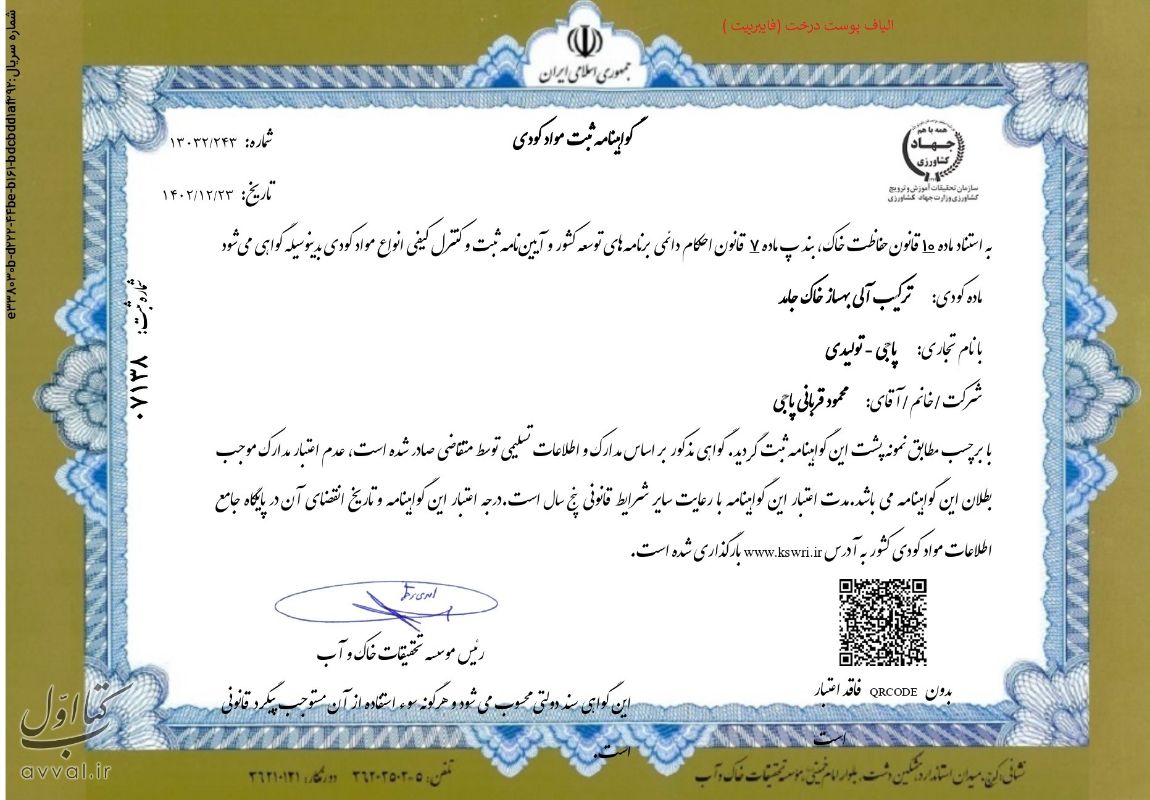 الیاف پوست درخت (فایبربیت )
جمهوری اسلامی ایران
همه با هم
جهاد
کشاورزی
سازمان تحقیقات آموزش و ترویج
کشاورزی وزارت جهاد کشاورزی
گواهینامه ثبت مواد کودی
شماره: ۱۳۰۳۲/۲۴۳
تاریخ: ۱۴۰۲/۱۲/۲۳
به استناد ماده ۱۰ قانون حفاظت خاک، بند پ ماده ۷ قانون احکام دائمی برنامه های توسعه کشور و آیین نامه ثبت و کنترل کیفی انواع مواد کودی بدینوسیله گواهی می شود
ماده کودی: ترکیب آلی بهساز خاک جامد
با نام تجاری: پاجی - تولیدی
شرکت / خانم / آقای: محمود قربانی پاجی
با برچسب مطابق نمونه پشت این گواهینامه ثبت گردید. گواهی مذکور بر اساس مدارک و اطلاعات تسلیمی توسط متقاضی صادر شده است، عدم اعتبار مدارک موجب
بطلان این گواهینامه می باشد. مدت اعتبار این گواهینامه با رعایت سایر شرایط قانونی پنج سال است. درجه اعتبار این گواهینامه و تاریخ انقضای آن در پایگاه جامع
اطلاعات مواد کودی کشور به آدرس www.kswri.ir بارگذاری شده است.
رئیس موسسه تحقیقات خاک و آب
بدون QRCODE فاقد اعتبار
است
این گواهی سند دولتی محسوب می شود و هرگونه سوء استفاده از آن مستوجب پیگرد قانونی
است.
نشانی: کرج، میدان استاندارد، مشکین دشت، بلوار امام خمینی، موسسه تحقیقات خاک و آب
تلفن: ۵-۳۶۲۰۳۵۰۲ دورنگار: ۳۶۲۱۰۱۲۱
شماره ثبت: ۰۷۱۳۸
شماره سریال:
کتاب اول
avval.ir